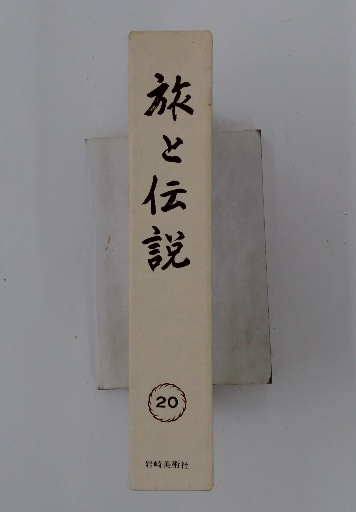 旅と伝説
20
岩崎美術社